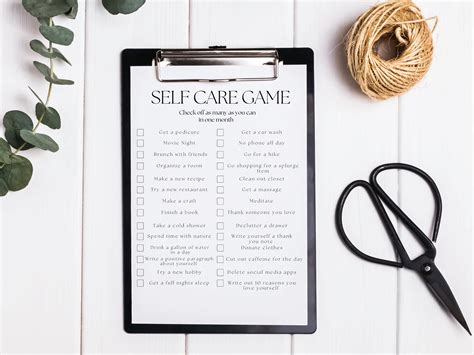 SELF CARE GAME
Check off as many as you can
in one month
Get a pedicure
Movie Night
Brunch with friends
Organize a room
Make a new recipe
Try a new restaurant
Make a craft
Finish a book
Take a cold shower
Spend time with nature
Drink a gallon of water
in a day
Write a positive paragraph
about yourself
Try a new hobby
Get a full nights sleep
Get a car wash
No phone all day
Go for a hike
Go shopping for a splurge
item
Clean out closet
Get a massage
Meditate
Thank someone you love
Declutter a drawer
Write yourself a thank
you note
Donate clothes
Cut out caffeine for the day
Delete social media apps
Write out reasons you
love yourself